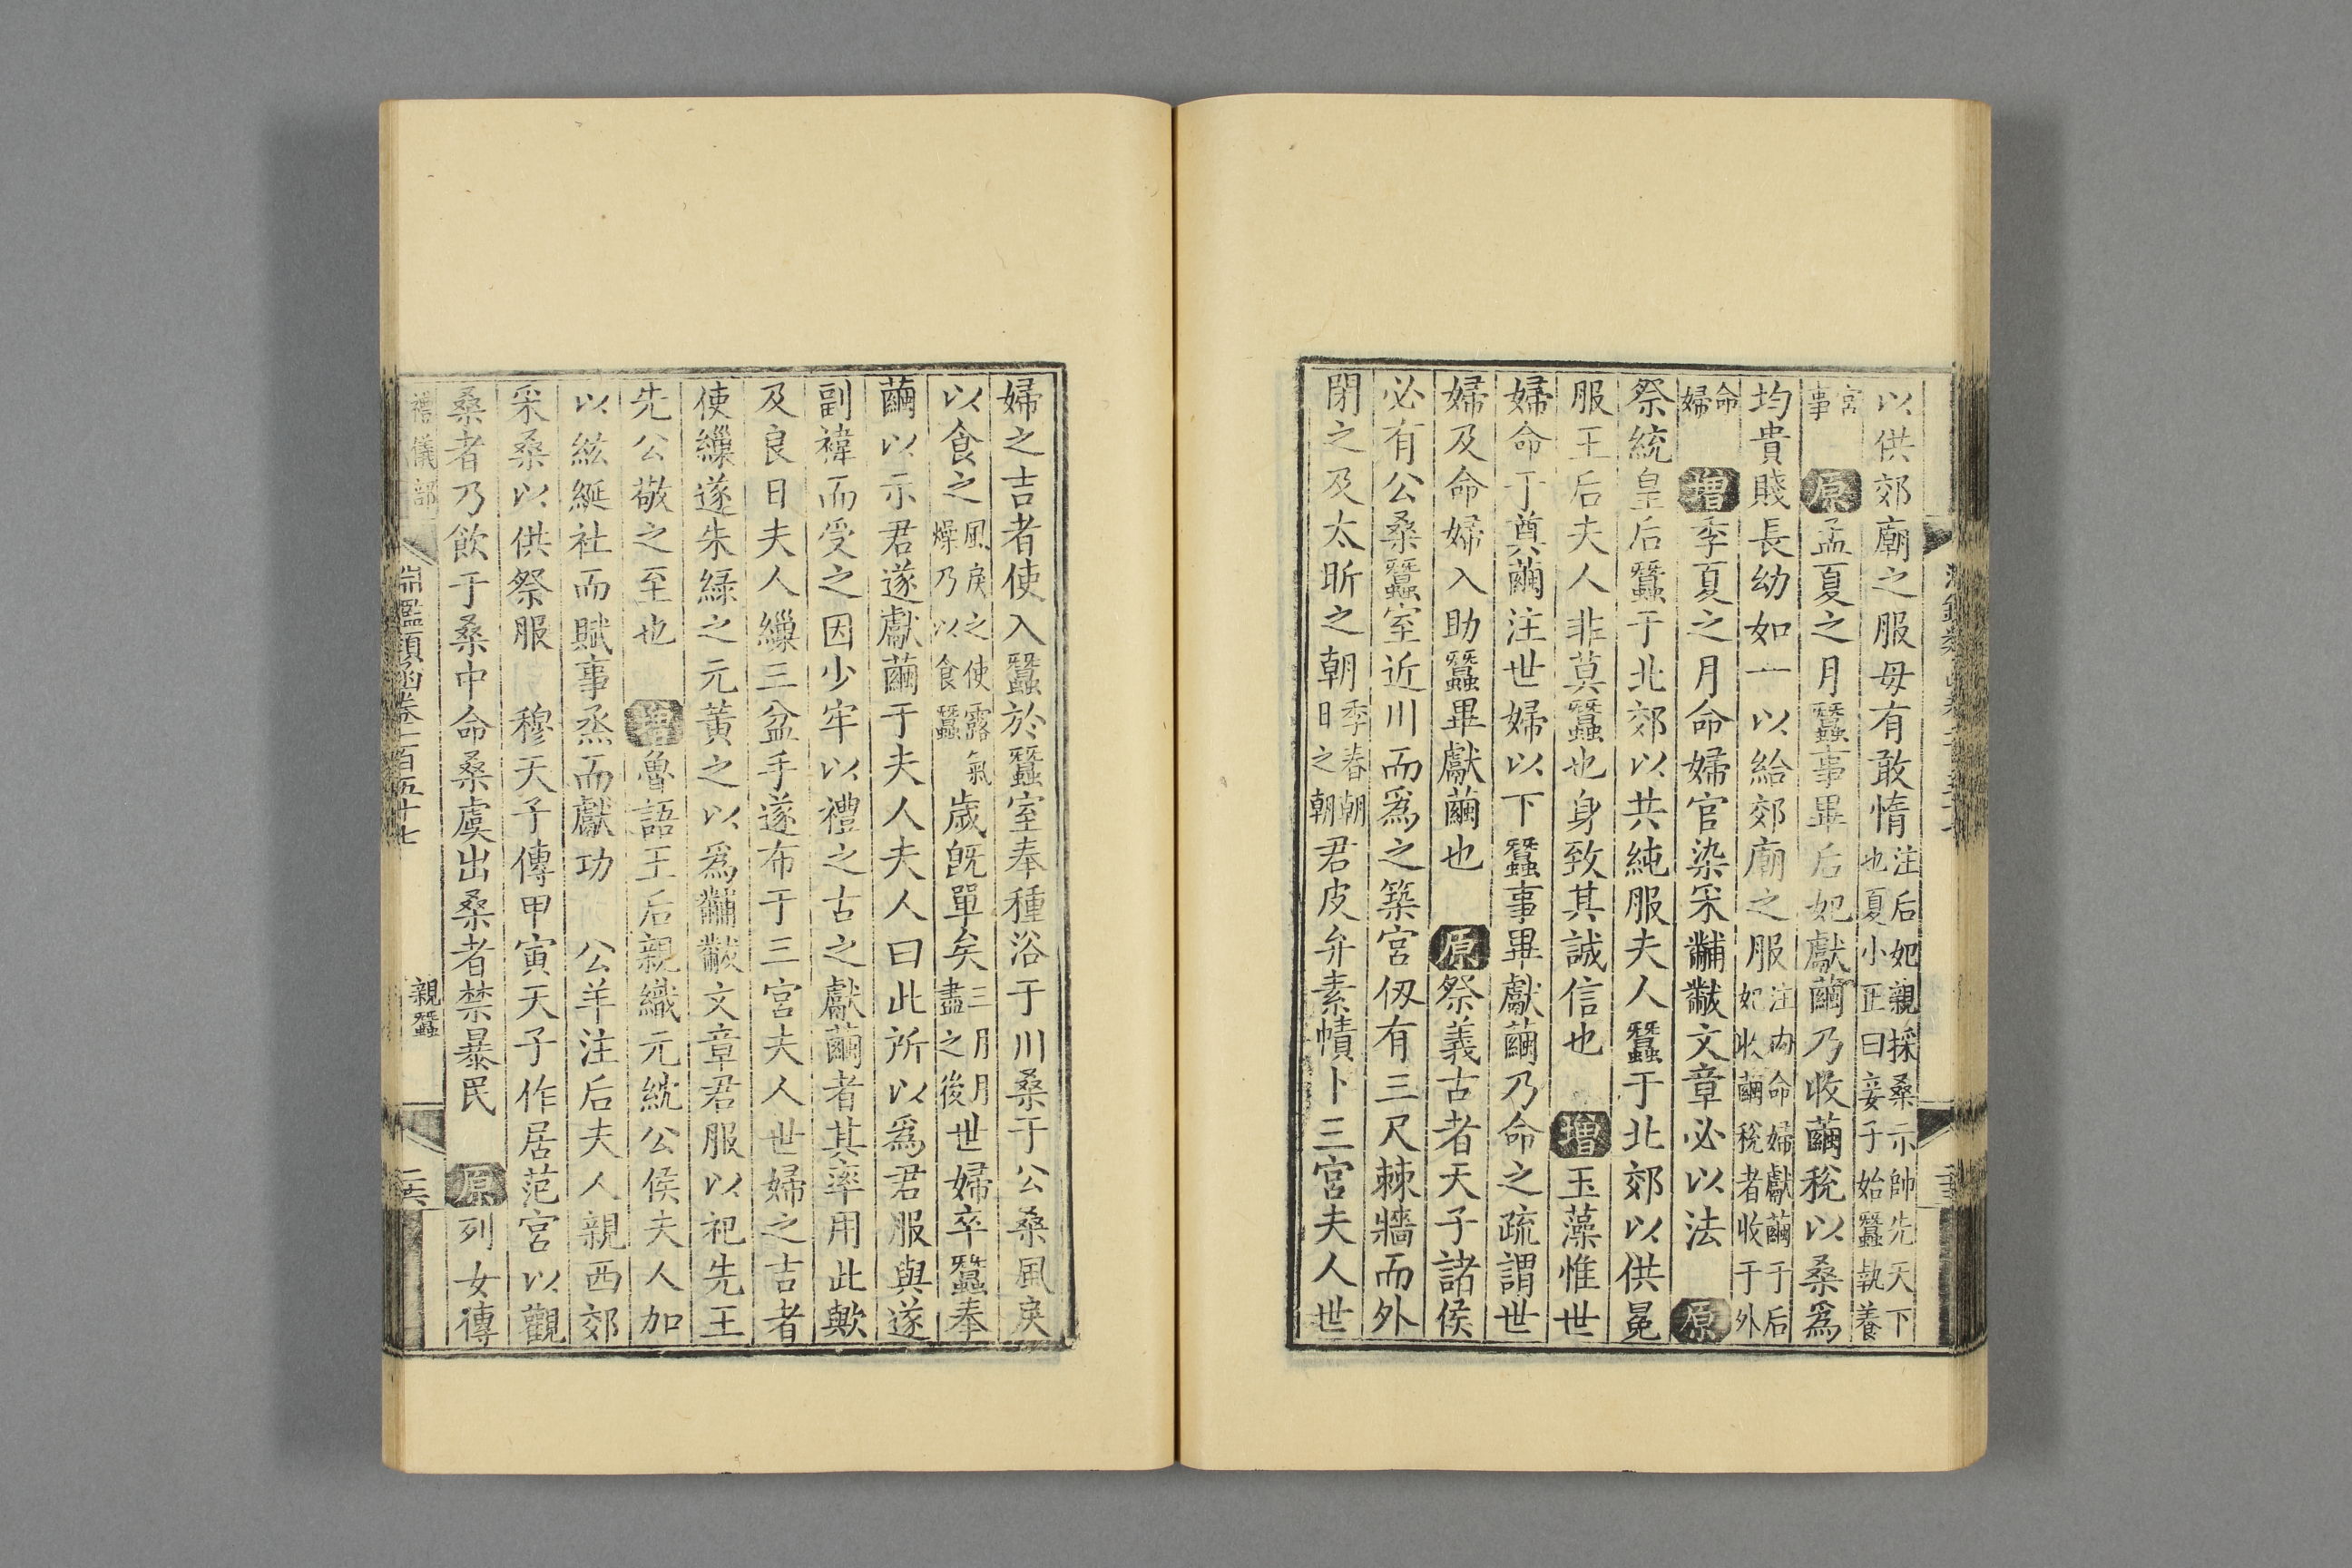 以供郊廟之服毋有敢惰注后妃親採桑示帥先天下也夏小正曰妾子始蠶執養
宮事原孟夏之月蠶事畢后妃獻繭乃收繭稅以桑爲
均貴賤長幼如一以給郊廟之服注內命婦獻繭于后妃收繭稅者收于外
命婦增季夏之月命婦官染采黼黻文章必以法原
祭統皇后蠶于北郊以共純服夫人蠶于北郊以供冕
服王后夫人非莫蠶也身致其誠信也增玉藻惟世
婦命于奠繭注世婦以下蠶事畢獻繭乃命之疏謂世
婦及命婦入助蠶畢獻繭也原祭義古者天子諸侯
必有公桑蠶室近川而爲之築宮仞有三尺棘牆而外
閉之及太昕之朝季春朝日之朝君皮弁素幘卜三宮夫人世
婦之吉者使入蠶於蠶室奉種浴于川桑于公桑風戾
以食之風戾之使露氣燥乃以食蠶歲旣單矣三月月盡之後世婦卒蠶奉
繭以示君遂獻繭于夫人夫人曰此所以爲君服與遂
副褘而受之因少牢以禮之古之獻繭者其率用此歟
及良日夫人繅三盆手遂布于三宮夫人世婦之吉者
使繅遂朱綠之元黃之以爲黼黻文章君服以祀先王
先公敬之至也增魯語王后親織元紞公侯夫人加
以紘綖社而賦事烝而獻功公羊注后夫人親西郊
采桑以供祭服穆天子傳甲寅天子作居范宮以觀
桑者乃飲于桑中命桑虞出桑者禁暴民原列女傳
禮儀部 淵鑑類函卷一百五十七 親蠶 二六